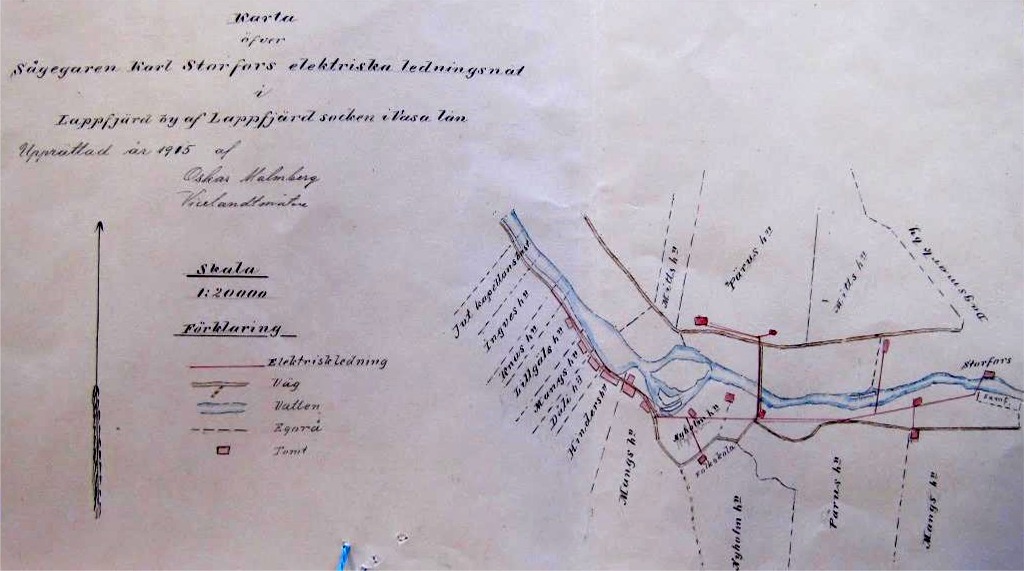 Karta
öfver
Sågegaren Karl Storfors elektriska ledningsnät
i
Lappfjärd by af Lappfjärd socken i Vasa län
Upprättad år 1915 af
Oskar Malmberg
Vicelandtmätare
Skala
1:20000
Förklaring
Elektriskledning
Väg
Vatten
Egorå
Tomt
Jut kapellansbol
Ingves hn
Knus hn
Lillgäls hn
Mangs hn
Düls hn
Hinders hn
Mangs hn
Mitts hn
Pärus hn
Mitts hn
Dagsmark by
Storfors
Samf.
Nyholm hn
Folkskola
Nyholm hn
Pärus hn
Mangs hn